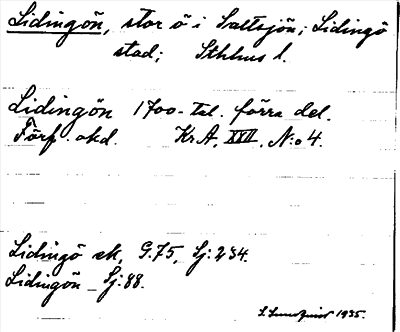 Lidingön, stor ö i Saltsjön; Lidingö
stad; Sthlms l.
Lidingön 1700-tal. förra del.
Förf. okd. Kr.A. XXII, N:o 4.
Lidingö sk, G.75, Sj:234.
Lidingön _ Sj:88.
S. Lundquist 1935.